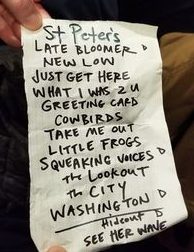 St Peter's
LATE BLOOMER D
NEW LOW
JUST GET HERE
WHAT I WAS 2 U
GREETING CARD
COWBIRDS
TAKE ME OUT
LITTLE FROGS
SQUEAKING VOICES D
the LOOKOUT
the CITY
WASHINGTON D
Hideout D
SEE HER WAVE